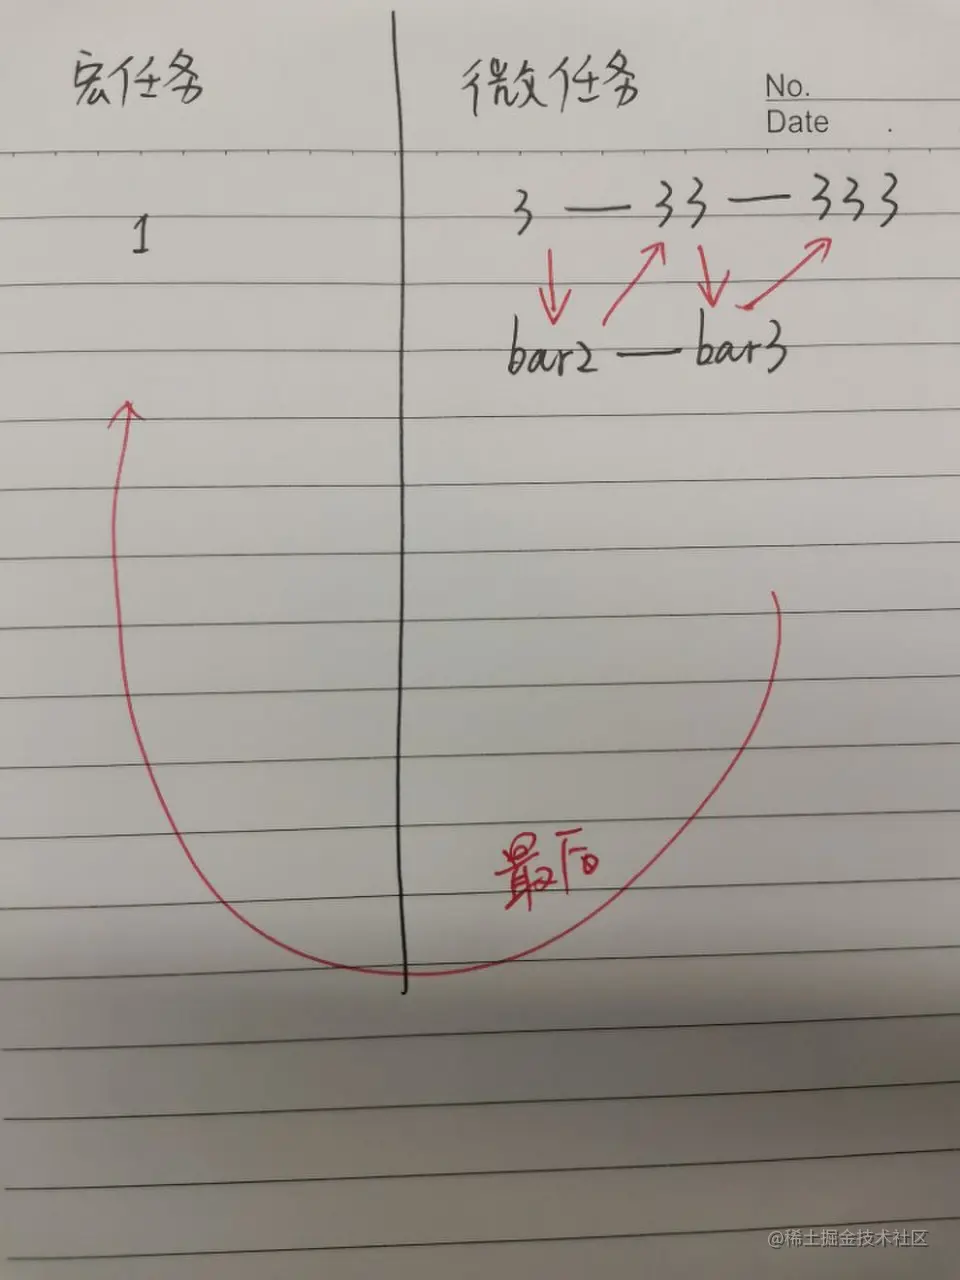 宏任务 微任务
No.
Date .
3 — 33 — 333
1
bar2 — bar3
最后
@稀土掘金技术社区